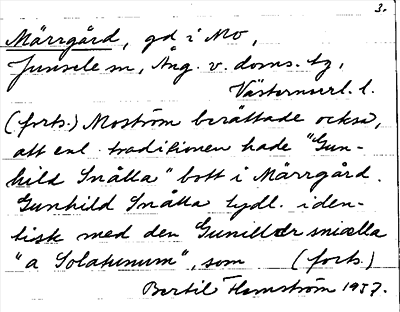 3.
Märrgård, gd i Mo,
Junsele sn, Ång. v. doms. tg,
Västernorrl. l.
(forts.) Moström berättade också,
att enl. traditionen hade "Gun-
hild Snälla" bott i Märrgård.
Gunhild Snälla tydl. iden-
tisk med den Gunilldr sniælla
"a Solatunum", som (forts.)
Bertil Flemström 1957.